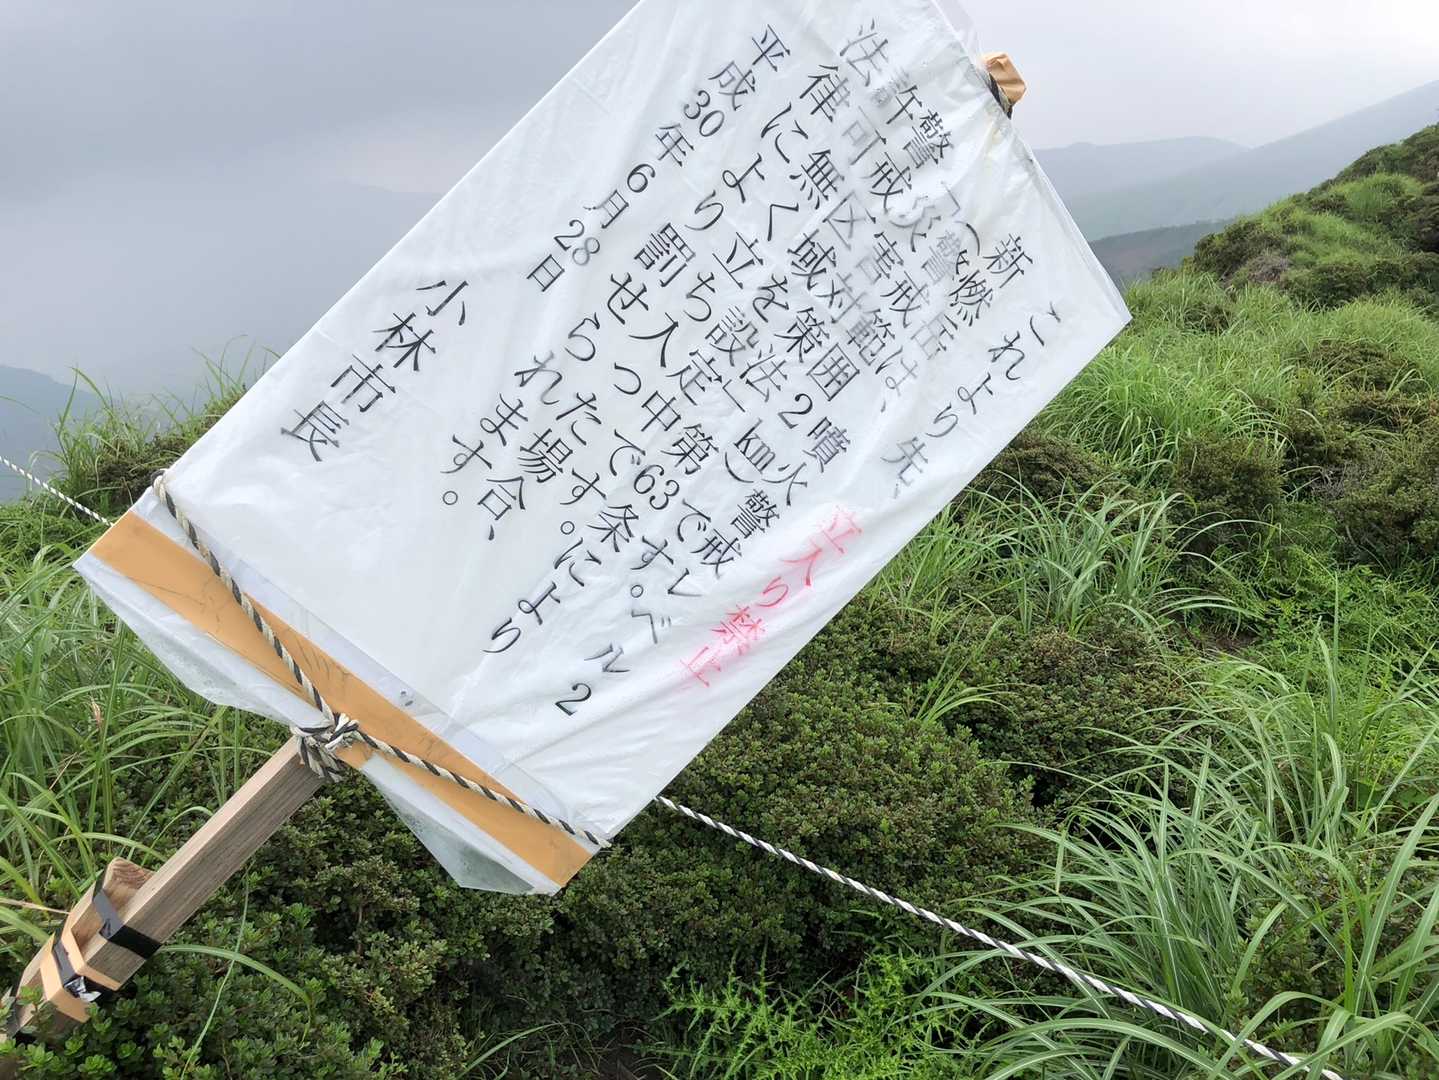 これより先、立入り禁止
新燃岳は、噴火警戒レベル2
(警戒範囲2km)です。
「災害対策法」第63条により
警戒区域を設定中です。
許可無く立ち入った場合、
法律により罰せられます。
平成30年6月28日
小林市長